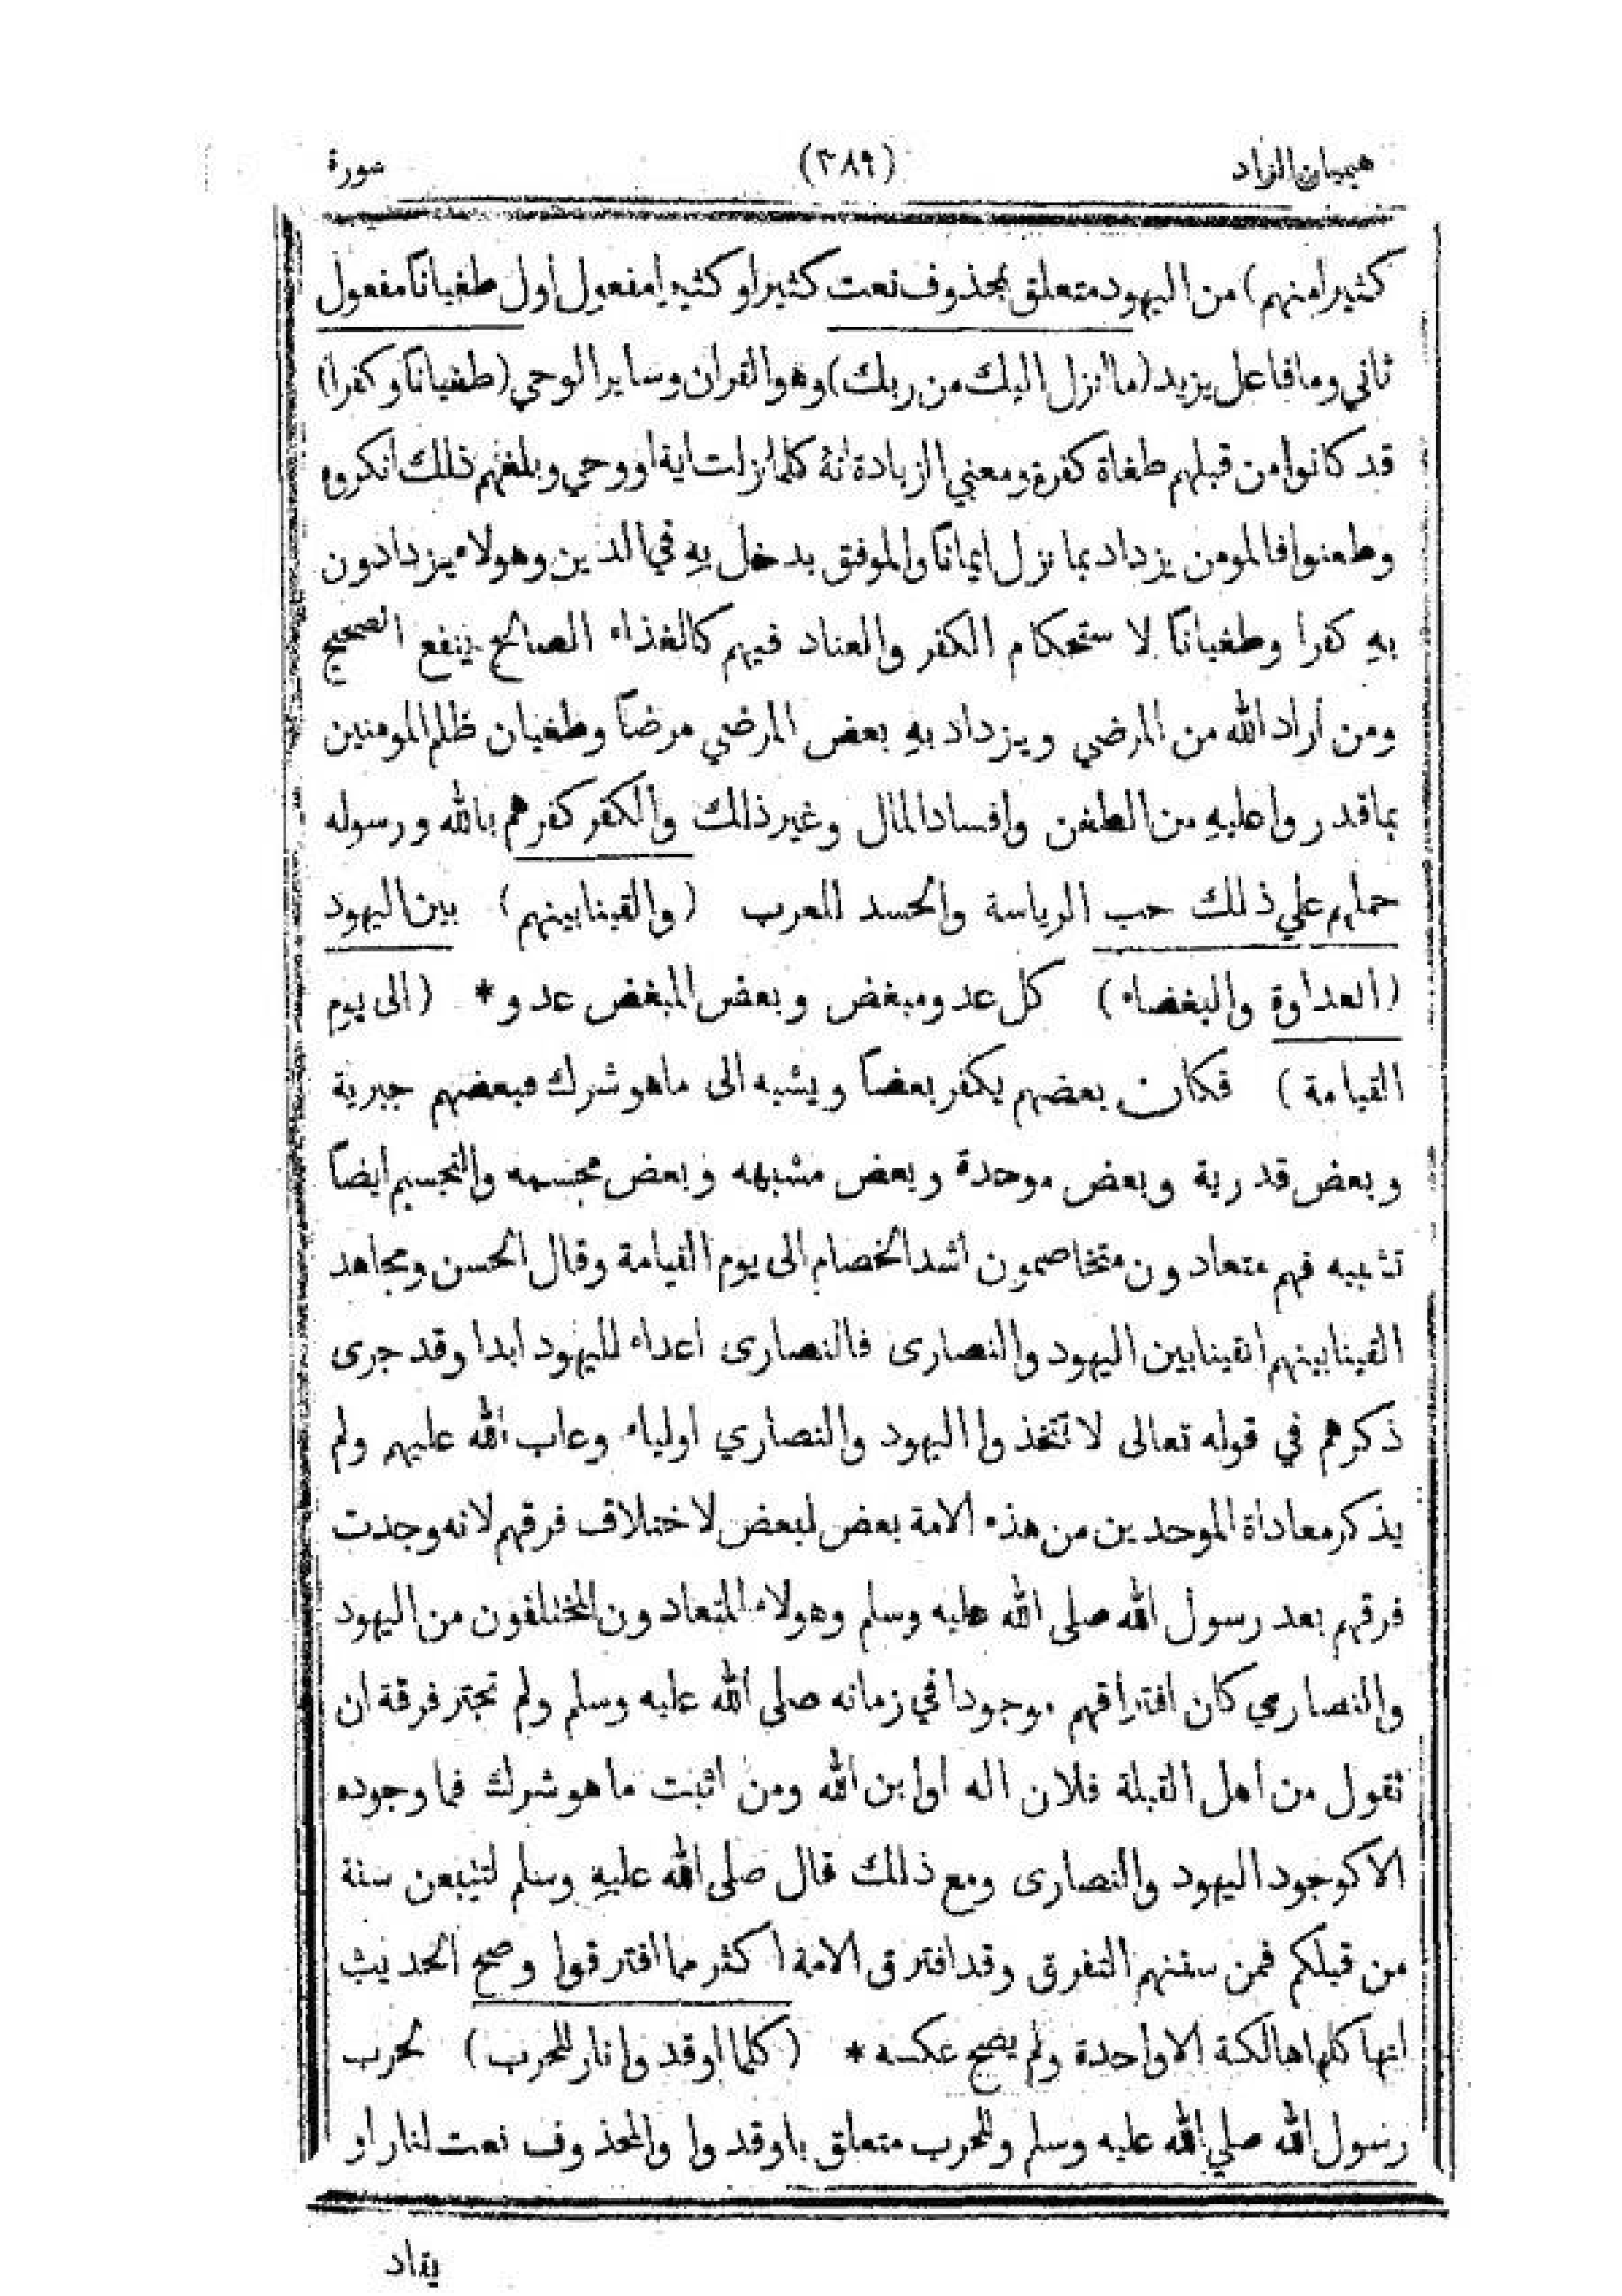 هيميان الزاد (٣٨٩) سورة
كثيرا منهم) من اليهود متعلق بمحذوف نعت كثيرا وكثيرا مفعول أول طغيانا مفعول
ثاني وما فاعل يزيد (ما انزل اليك من ربك) وهو القران وساير الوحي (طغيانا وكفرا)
قد كانوا من قبلهم طغاة كفرة ومعني الزيادة انه كلما نزلت اية او وحي وبلغهم ذلك انكروه
وطعنوا فالمومن يزداد بما نزل ايمانا والموفق يدخل به في الدين وهولاء يزدادون
به كفرا وطغيانا لا ستحكام الكفر والعناد فيهم كالغذاء الصالح ينفع الصحيح
ومن أراد الله من المرضي ويزداد به بعض المرضي مرضا وطغيان ظلم المومنين
بما قدروا عليه من الطعن وافساد المال وغير ذلك والكفر كفرهم بالله ورسوله
حملهم علي ذلك حب الرياسة والحسد للعرب (والقينا بينهم) بين اليهود
(العداوة والبغضاء) كل عدو مبغض وبعض المبغض عدو * (الى يوم
القيامة) فكان بعضهم يكفر بعضا ويشبه الى ماهو شرك فبعضهم جبرية
وبعض قدرية وبعض موحدة وبعض مشبهه وبعض مجسمه والتجسيم ايضا
تشبيه فهم متعادون متخاصمون اشد الخصام الى يوم القيامة وقال الحسن ومجاهد
القينا بينهم القينا بين اليهود والنصارى فالنصارى اعداء لليهود ابدا وقد جرى
ذكرهم في قوله تعالى لا تتخذوا اليهود والنصاري اولياء وعاب الله عليهم ولم
يذكر معاداة الموحدين من هذه الامة بعض لبعض لاختلاف فرقهم لانه وجدت
فرقهم بعد رسول الله صلى الله عليه وسلم وهولاء المتعادون المختلفون من اليهود
والنصاري كان افتراقهم موجودا في زمانه صلى الله عليه وسلم ولم تجتر فرقة ان
تقول من أهل القبلة فلان اله اوابن الله ومن اثبت ما هو شرك فما وجوده
الا كوجود اليهود والنصارى ومع ذلك قال صلى الله عليه وسلم لتتبعن سنة
من قبلكم فمن سننهم التفرق وقد افترق الامة اكثر مما افترقوا وصح الحديث
انها كلها هالكة الا واحدة ولم يصح عكسه * (كلما اوقدوا نارا للحرب) لحرب
رسول الله صلي الله عليه وسلم وللحرب متعلق باوقدوا والمحذوف نعت لنار او
يقاد